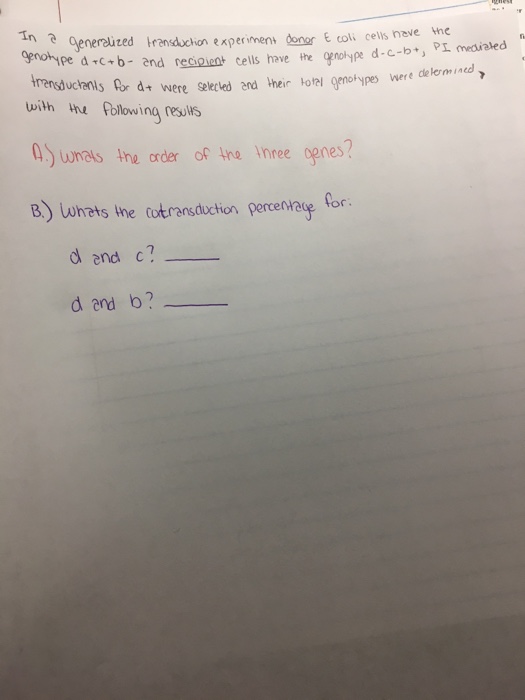 In a generalized transduction experiment donor E coli cells have the
genotype d+c+b- and recipient cells have the genotype d-c-b+, PI mediated
transductants for d+ were selected and their total genotypes were determined,
with the following results
A.) Whats the order of the three genes?
B.) Whats the cotransduction percentage for:
d and c?
d and b?